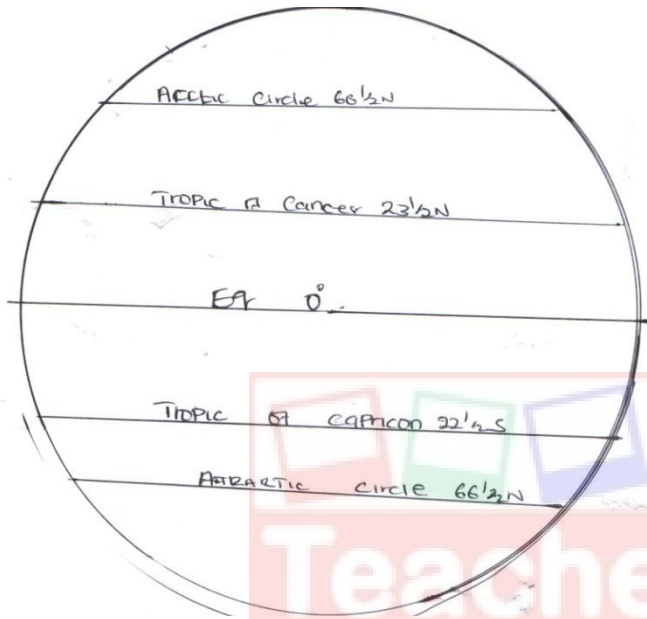 Arctic Circle 66½N
Tropic of Cancer 23½N
Eq 0°
Tropic of capricon 22½S
ANTRARTIC circle 66½N
Teache